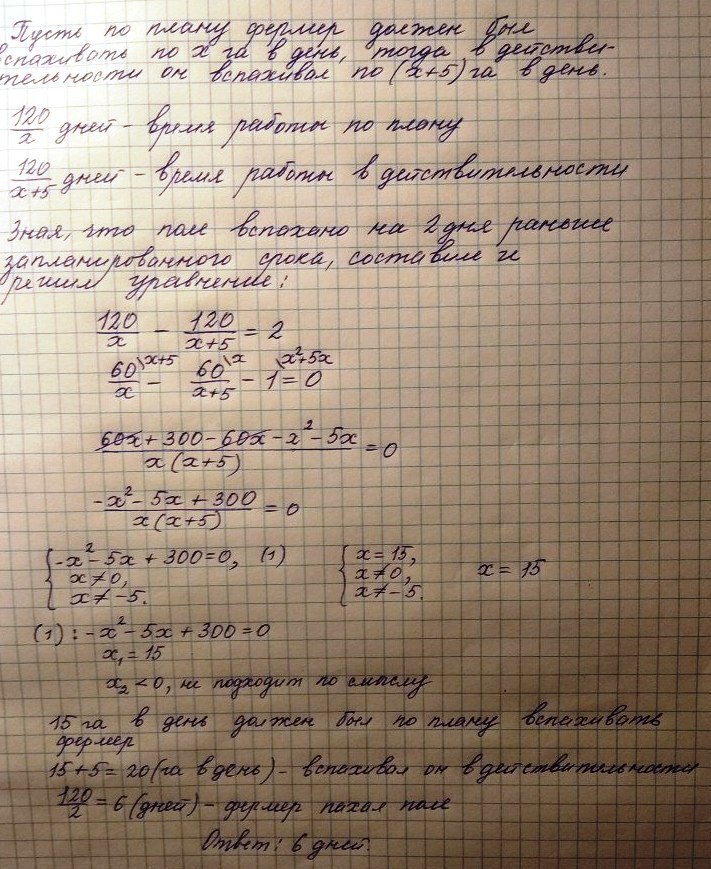 Пусть по плану фермер должен был
вспахивать по x га в день, тогда в действи-
тельности он вспахивал по (x+5) га в день.
120/x дней - время работы по плану
120/(x+5) дней - время работы в действительности
Зная, что поле вспахано на 2 дня раньше
запланированного срока, составим и
решим уравнение:
120/x - 120/(x+5) = 2
60\x+5/x - 60\x/(x+5) - 1\x²+5x = 0
(60x + 300 - 60x - x² - 5x)/(x(x+5)) = 0
(-x² - 5x + 300)/(x(x+5)) = 0
{ -x² - 5x + 300 = 0, (1) { x = 15,
x ≠ 0, x ≠ 0, x = 15
x ≠ -5. x ≠ -5.
(1): -x² - 5x + 300 = 0
x₁ = 15
x₂ < 0, не подходит по смыслу
15 га в день должен был по плану вспахивать
фермер
15 + 5 = 20 (га в день) - вспахивал он в действительности
120/2 = 6 (дней) - фермер пахал поле
Ответ: 6 дней.